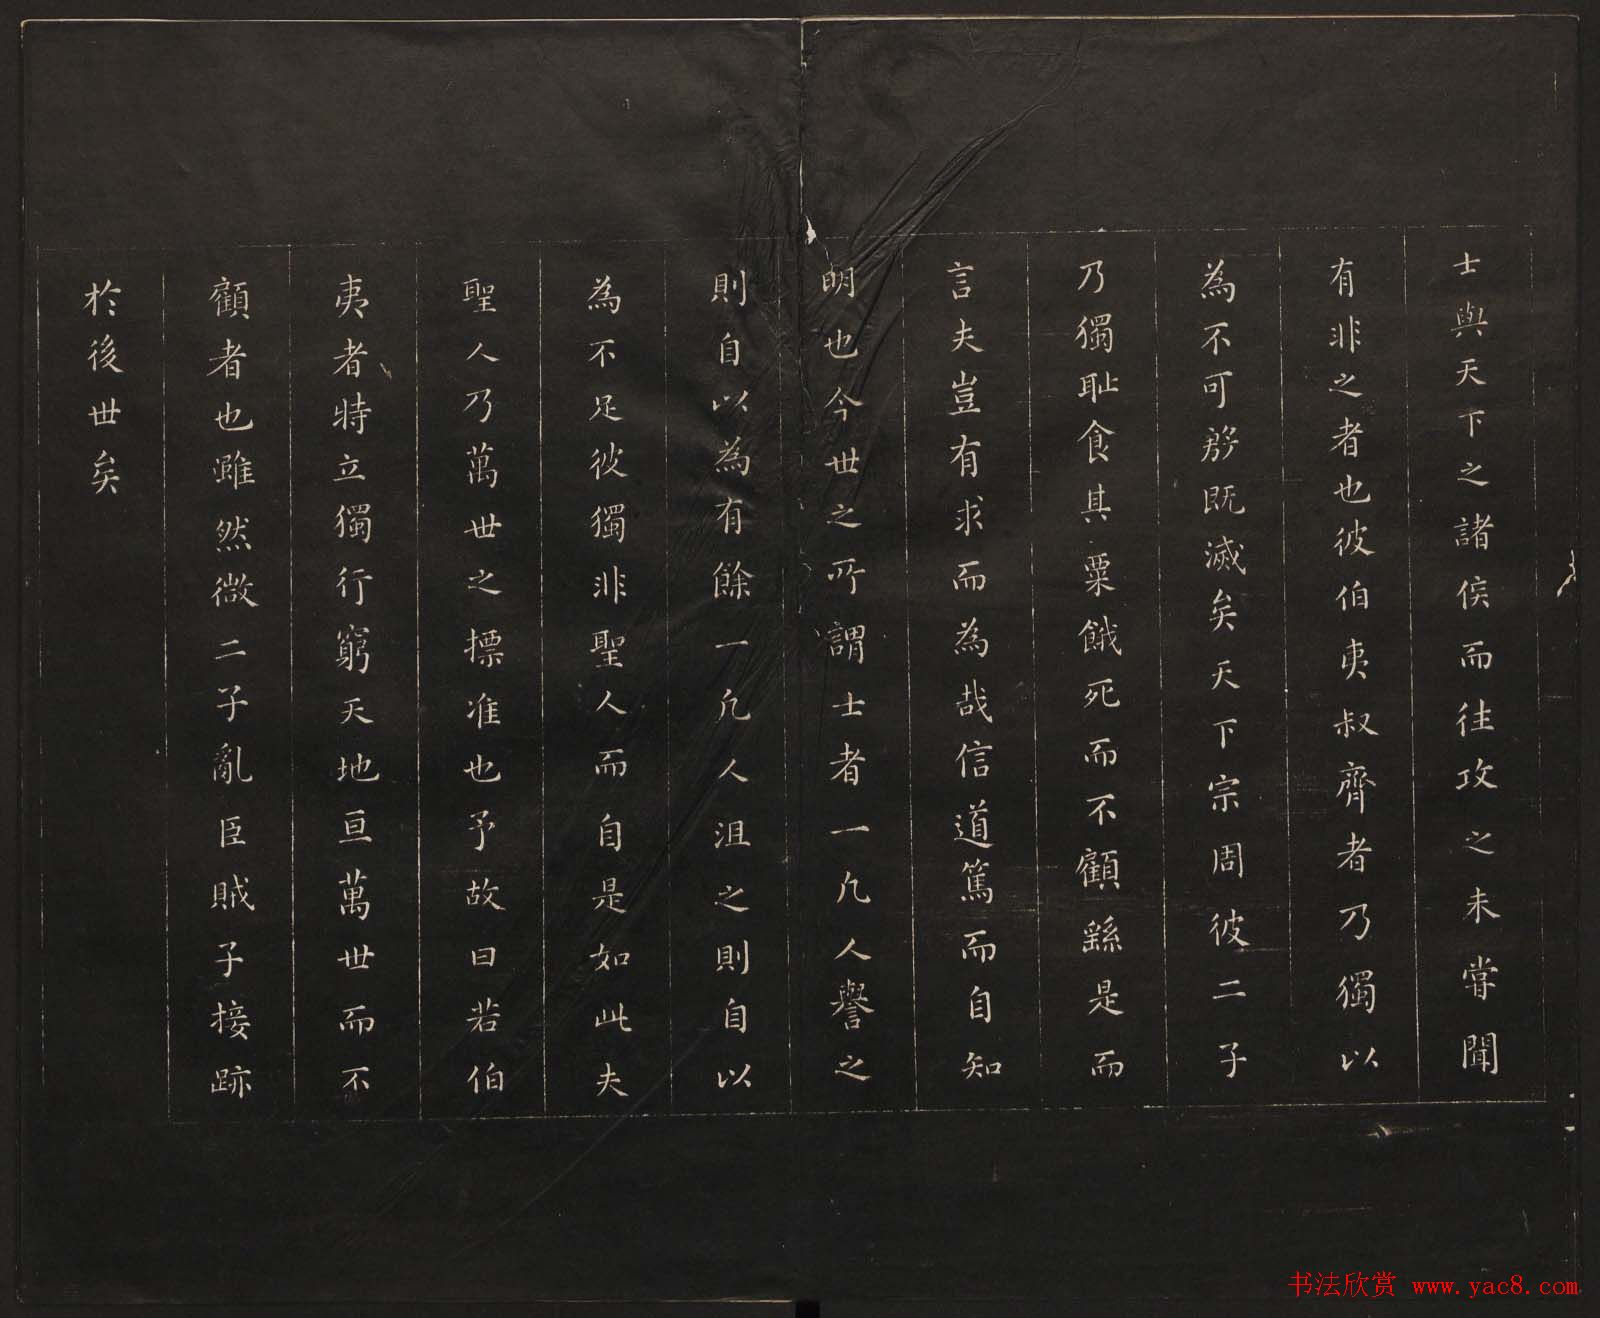 士與天下之諸侯而往攻之未嘗聞
有非之者也彼伯夷叔齊者乃獨以
為不可殷既滅矣天下宗周彼二子
乃獨耻食其粟餓死而不顧繇是而
言夫豈有求而為哉信道篤而自知
明也今世之所謂士者一凡人譽之
則自以為有餘一凡人沮之則自以
為不足彼獨非聖人而自是如此夫
聖人乃萬世之摽准也予故曰若伯
夷者特立獨行窮天地亘萬世而不
顧者也雖然微二子亂臣賊子接跡
於後世矣
书法欣赏 www.yac8.com